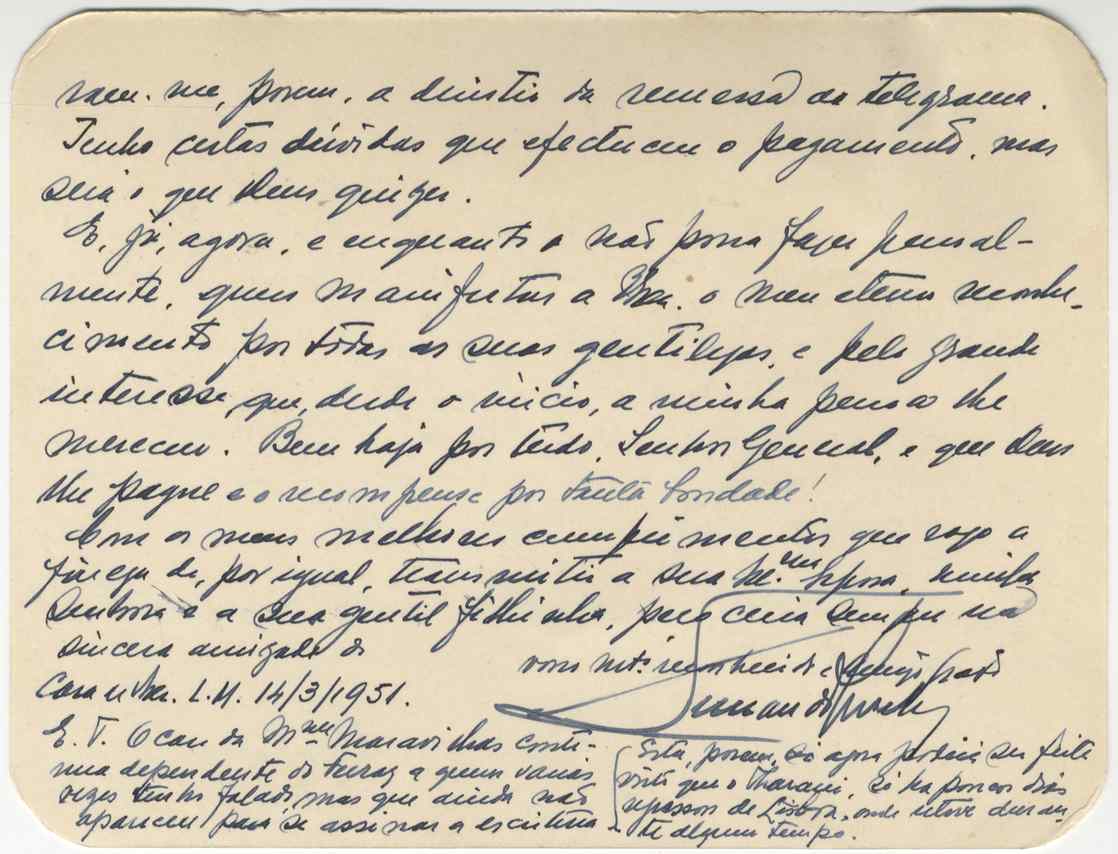 me, porem, a da remessa do telegrama.
Tenho certas dúvidas que efectuem o pagamento, mas
será o que Deus quizer.
E, já, agora, e enquanto o não possa fazer pessoal-
mente, quero manifestar a V. Exa. o meu eterno reconhe-
cimento por todas as suas gentilezas, e pelo grande
interesse que, desde o inicio, a minha pensão lhe
mereceu. Bem haja por tudo, Senhor General, e que Deus
lhe pague e o recompense por tanta bondade!
Com os meus melhores cumprimentos que rogo a
fineza de, por igual, transmitir a sua Esposa, minha
Senhora e a sua gentil filhinha, peço creia sempre na
sincera amizade do
reconhecido e amigo grato
L. M. 14/3/1951.
E. T. O caso da Maravilhas conti-
nua dependente do Ferraz a quem varias
vezes tenho falado, mas que ainda não
apareceu para se assinar a escritura
Esta, porem, só agora poderia ser feita
visto que o só ha poucos dias
regressou de Lisboa, onde esteve duran-
te algum tempo.